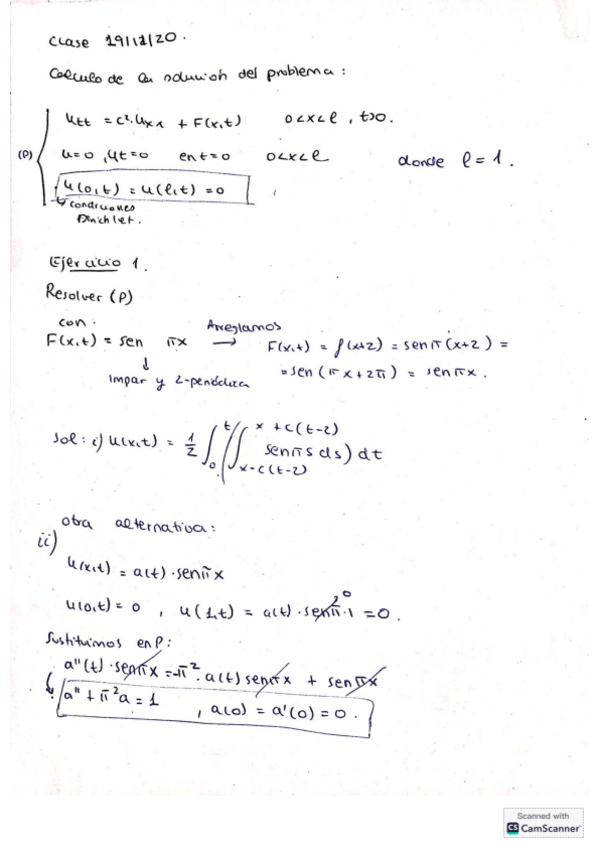 Clase 19/12/20.
Calculo de la solucion del problema:
(P) { Utt = c²·Uxx + F(x,t) 0<x<l, t>0.
u=0, Ut=0 en t=0 0<x<l donde l = 1.
u(0,t) = u(l,t) = 0
↳ condiciones
Dirichlet.
Ejercicio 1.
Resolver (P)
con.
F(x,t) = sen πx → Arreglamos F(x,t) = f(x+2) = senπ(x+2) =
↓
Impar y 2-periódica = sen(πx+2π) = senπx.
Sol: i) u(x,t) = 1/2 ∫₀ᵗ (∫_{x-c(t-z)}^{x+c(t-z)} senπs ds) dt
otra alternativa:
ii)
u(x,t) = a(t)·senπx
u(0,t) = 0, u(1,t) = a(t)·senπ·1 = 0.
Sustituimos en P:
a''(t)·senπx = -π²·a(t) senπx + senπx
↳ a'' + π²a = 1, a(0) = a'(0) = 0.
Scanned with
CS CamScanner